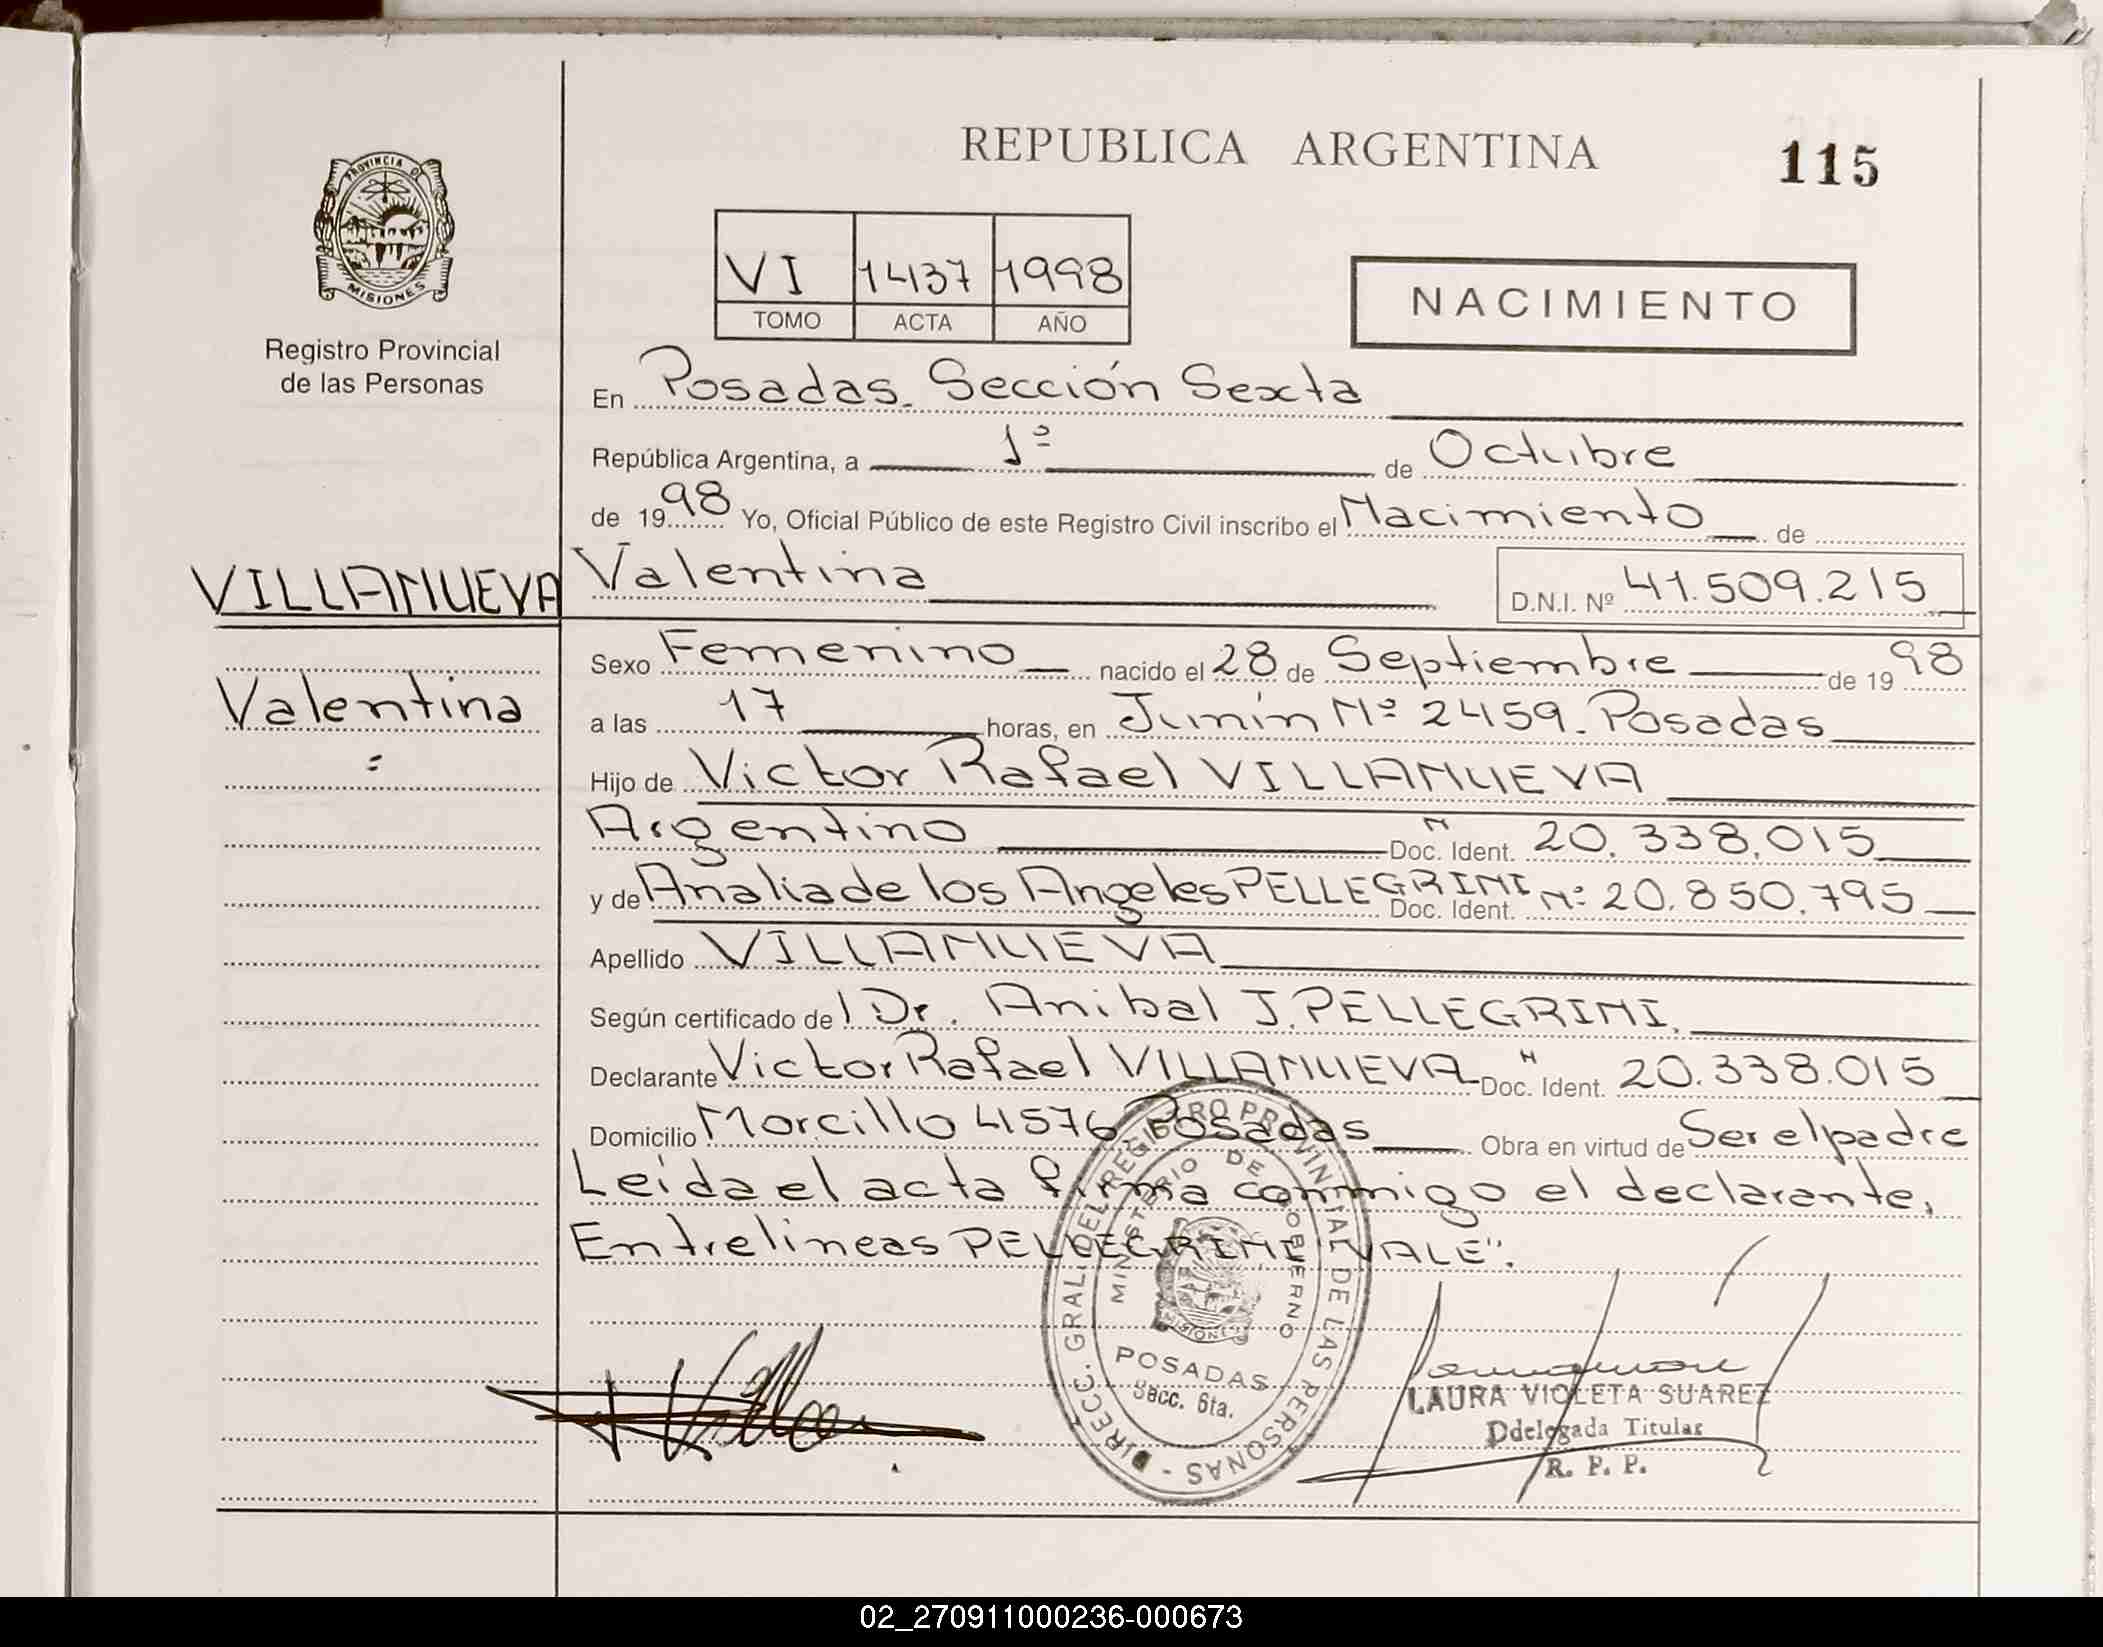 REPUBLICA ARGENTINA
115
PROVINCIA DE
MISIONES
Registro Provincial
de las Personas
VI 1437 1998
TOMO ACTA AÑO
NACIMIENTO
En Posadas. Sección Sexta
República Argentina, a 1º de Octubre
de 1998 Yo, Oficial Público de este Registro Civil inscribo el Nacimiento de
VILLANUEVA
Valentina D.N.I. Nº 41.509.215
Sexo Femenino nacido el 28 de Septiembre de 1998
Valentina
a las 17 horas, en Junín Nº 2459. Posadas
Hijo de Victor Rafael VILLANUEVA
Argentino Doc. Ident. N 20.338.015
y de Analia de los Angeles PELLEGRINI Doc. Ident. Nº 20.850.795
Apellido VILLANUEVA
Según certificado del Dr. Anibal J. PELLEGRINI.
Declarante Victor Rafael VILLANUEVA Doc. Ident. N 20.338.015
Domicilio Morcillo 4576 Posadas Obra en virtud de Ser el padre
Leída el acta firma conmigo el declarante.
Entrelineas PELLEGRINI "VALE".
DIRECC. GRAL. DEL REGISTRO PROVINCIAL DE LAS PERSONAS -
MINISTERIO DE GOBIERNO
MISIONES
POSADAS
Secc. 6ta.
LAURA VIOLETA SUAREZ
Ddelegada Titular
R. P. P.
02_270911000236-000673